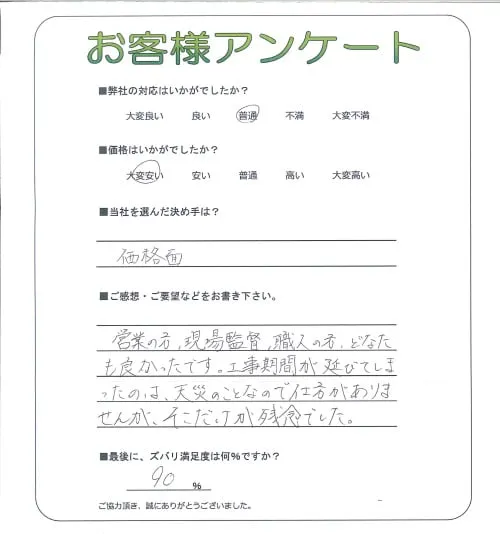 お客様アンケート
■弊社の対応はいかがでしたか？
大変良い 良い 普通 不満 大変不満
■価格はいかがでしたか？
大変安い 安い 普通 高い 大変高い
■当社を選んだ決め手は？
価格面
■ご感想・ご要望などをお書き下さい。
営業の方,現場監督,職人の方,どなた
も良かったです。工事期間が延びてしま
ったのは、天災のことなので仕方がありま
せんが、そこだけが残念でした。
■最後に、ズバリ満足度は何%ですか？
90 %
ご協力頂き、誠にありがとうございました。